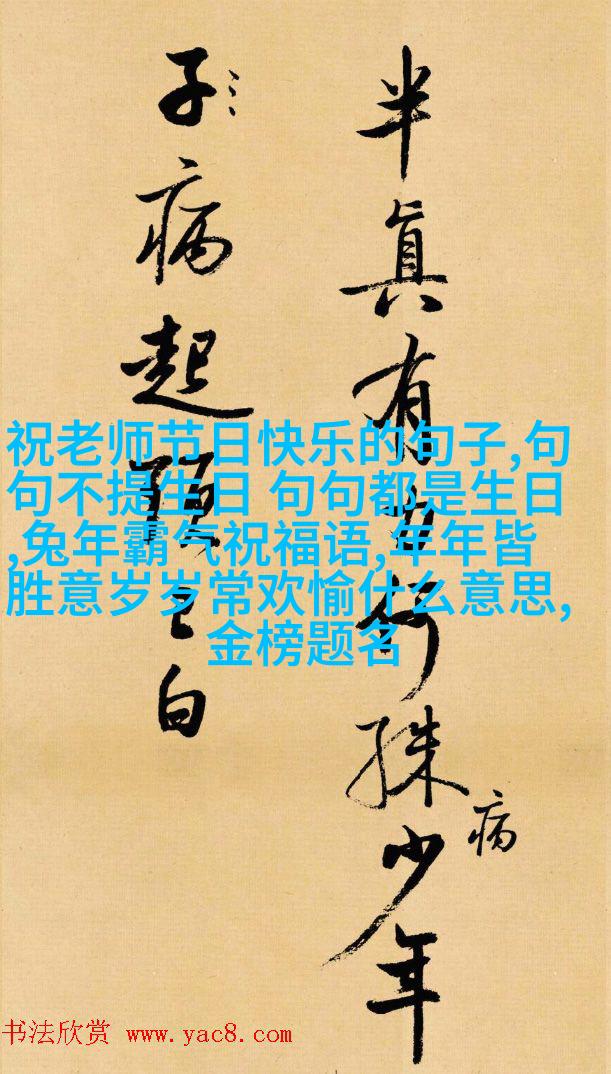 半真有何殊少年
病
子病起頭已白
祝老师节日快乐的句子,句
句不提生日 句句都是生日
,兔年霸气祝福语,年年皆
胜意岁岁常欢愉什么意思,
金榜题名
书法欣赏 www.yac8.com